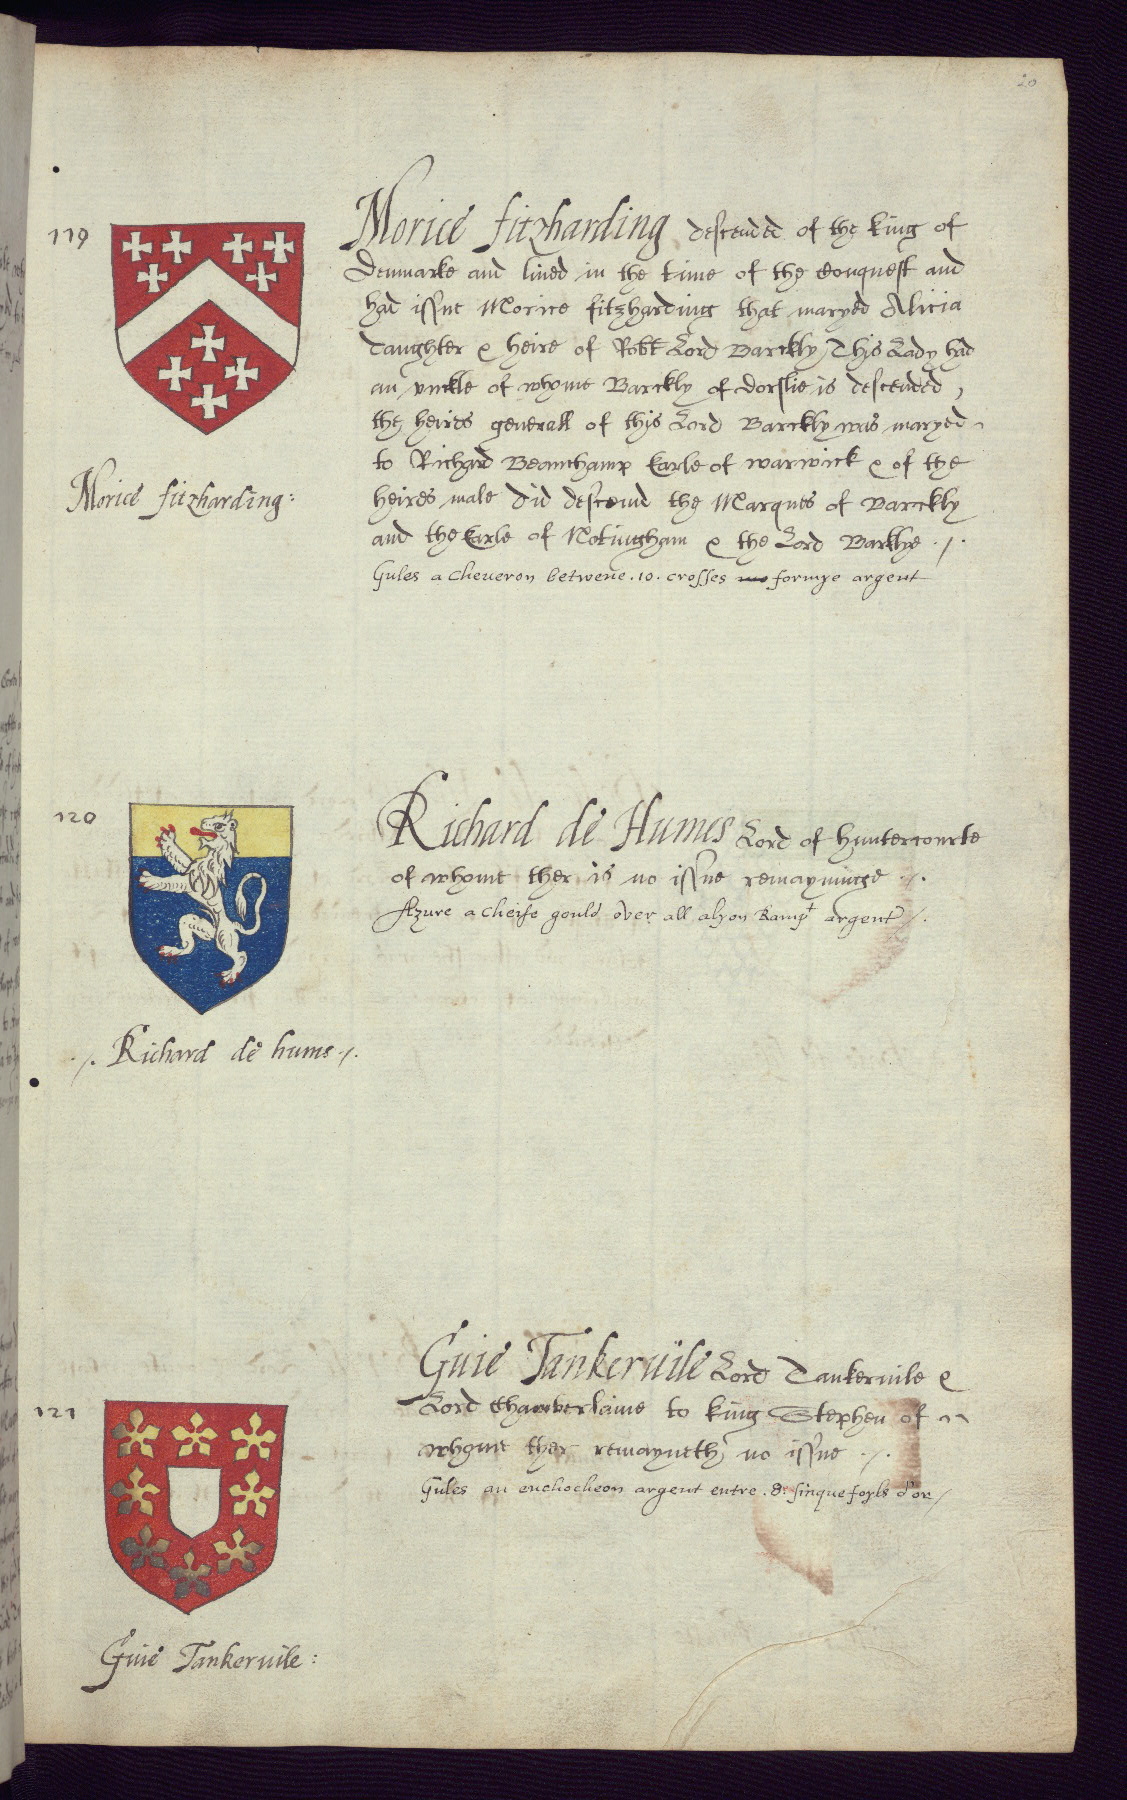 20
119
Morice fitzharding descended of the king of
Denmarke and lived in the time of the conquest and
had issue Morice fitzharding that maryed Alicia
daughter & heire of Robt Lord Barckly, This Lady had
an unckle of whome Barckly of dorslie is descended,
the heires generall of this Lord Barckly was maryed
to Richard Beamchamp Earle of warwick & of the
heires male did descend the Marques of Barckly
and the Earle of Notingham & the Lord Barklye ./.
Gules a cheueron betwene .10. crosses formye argent
Morice fitzharding:
120
Richard de Humes Lord of Huntercourte
of whome ther is no issue remayninge ./.
Azure a cheife gould over all a lyon Ramp^t argent /.
./. Richard de hums ./.
121
Guie Tankeruile Lord Tankeruile &
Lord chamberlaine to king Stephen of
whome ther remayneth no issue ./.
Gules an enchocheon argent entre .8. sinquefoyls d'or /
Guie Tankeruile: